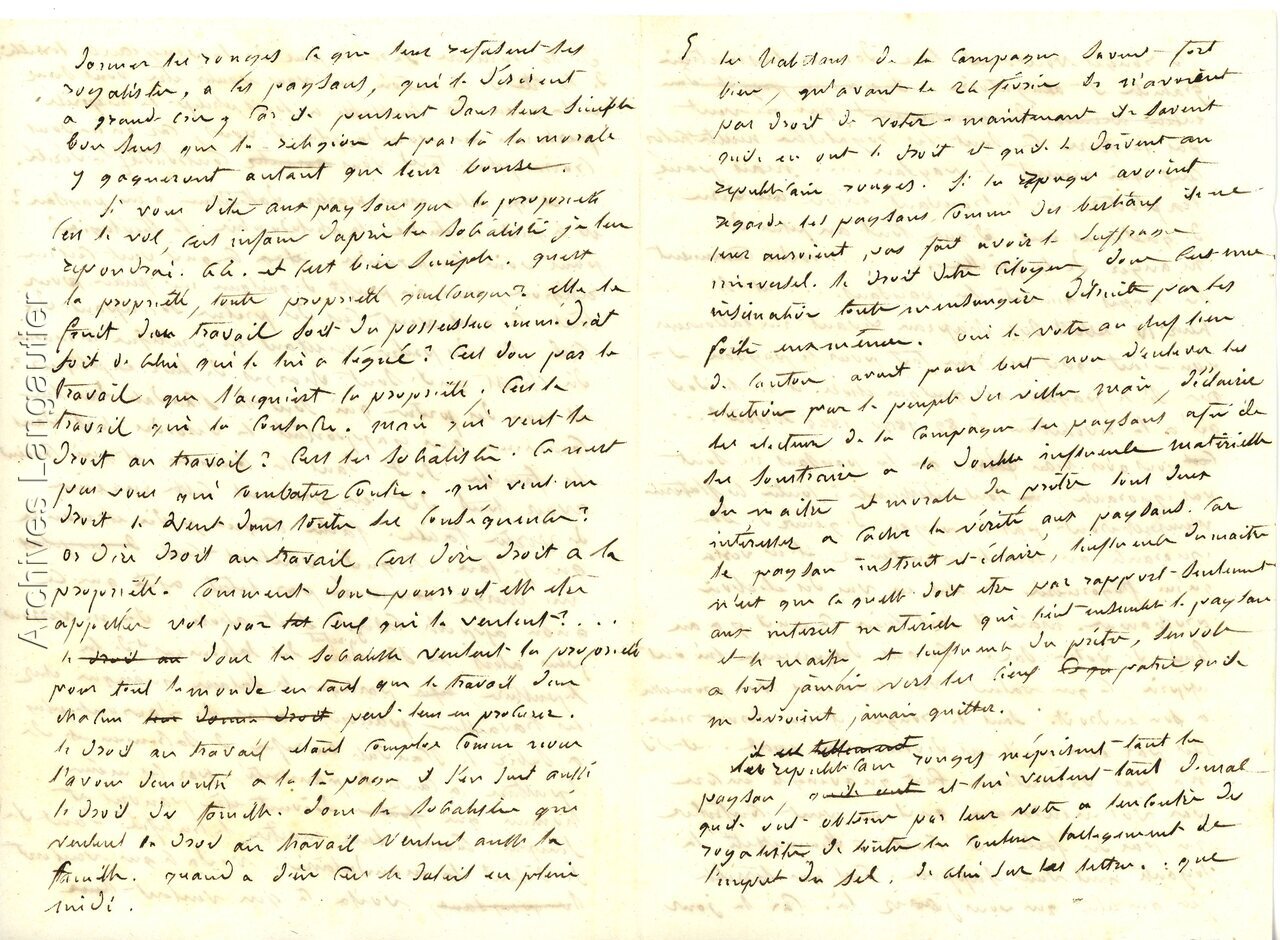 donner les rouges ce que leur refusent les
royalistes, a les paysans, qui le désirent
a grand cri, car ils pensent dans leur simple
bon sens que la religion et par là la morale
y gagneront autant que leur bourse.
Si vous dite aux paysans que la propriété
c'est le vol, c'est infame d'après les socialiste je leur
repondrai. et c'est bien simple. quest
la propriété, toute propriété quelconque? elle le
fruit d'un travail soit du possesseur immédiat
soit de celui qui le lui a légué? C'est donc par le
travail que l'acquiert la propriété. C'est le
travail qui la consacre. mais qui veut le
droit au travail? C'est les socialiste. Ce n'est
pas vous qui combatez contre. qui veut un
droit le veut dans toute ses conséquences?
or dire droit au travail c'est dire droit a la
propriété. Comment donc pourroit elle etre
appellée vol par ceux qui la veulent?....
le droit au donc les socialiste veulent la propriété
pour tout le monde en tant que le travail d'un
chacun donne droit peut leur en procurer.
le droit au travail etant complex comme nous
l'avons demontré a la 1e page il s'en suit aussi
le droit de famille. donc les socialistes qui
veulent le droit au travail veulent aussi la
famille. quand a Dieu c'est le soleil en plein
midi.
5 les habitans de la campagne savent fort
bien, qu'avant le 24 février ils n'avoient
pas droit de voter - maintenant ils savent
quils en ont le droit et quils le doivent au
republicain rouges. Si les rouges avoient
regardé les paysans comme des bestiaux ils ne
leur auroient pas fait avoir le suffrage
universel. le droit d'etre citoyen, donc c'est une
insinuation toute mensongère détruite par les
faits eux-mêmes. oui le vote au chef lieu
de canton avait pour but non d'enlever les
election par le peuple des villes mais, d'éclairer
les electeurs de la campagne les paysans afin de
les soustraire a la double influence matérielle
du maitre et morale du prêtre tout deux
intéresser a cacher la vérité aux paysans. car
le paysan instruit et éclairé, l'influence du maitre
n'est que ce quelle doit etre par rapport seulement
aux interet materiele qui lient ensemble le paysan
et le maitre, et l'influence du prêtre, s'envole
a tout jamais vers les cieux patrie quils
ne devroient jamais quitter.
il est tellement
les republicain rouges méprisent tant le
paysan, et lui veulent tant de mal
quils ont obtenu par leur vote a l'encontre des
royalistes de toute les couleurs l'allegement de
l'impot du sel. de celui sur les lettres. : que
Archives Langautier